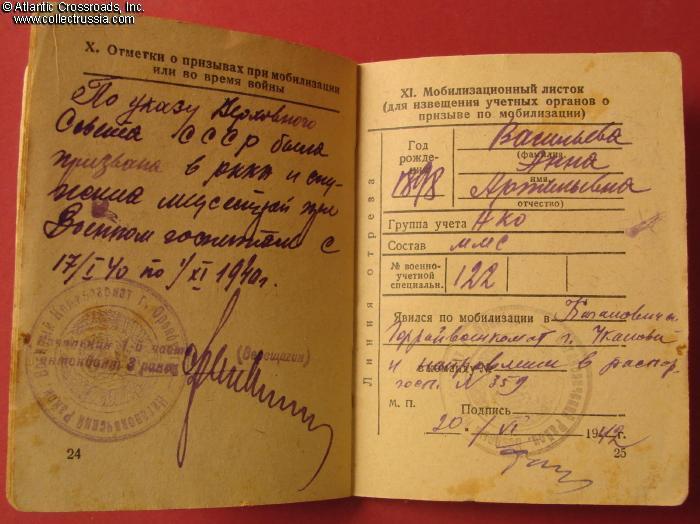 © Atlantic Crossroads, Inc.
www.collectrussia.com
X. Отметки о призывах при мобилизации
или во время войны
По указу Верховного
Совета СССР была
призвана в РККА и слу-
жения медсестрой при
Военном госпитале с
17/I 40 по 4/XI 1940г.
(Верещагин)
24
XI. Мобилизационный листок
(для извещения учетных органов о
призыве по мобилизации)
Линия отрева
Год
рожде-
ния
1898
Васильева
(фамилия)
Анна
имя
Артемьевна
отчество)
Группа учета АКО
Состав ММС
№ военно-
учетной
специальн.
122
Явился по мобилизации в Кагановичи
Горрайвоенкомат г.
и направлен в распор.
госп. N 359
М. П.
Подпись
20 / VI 1942г.
25